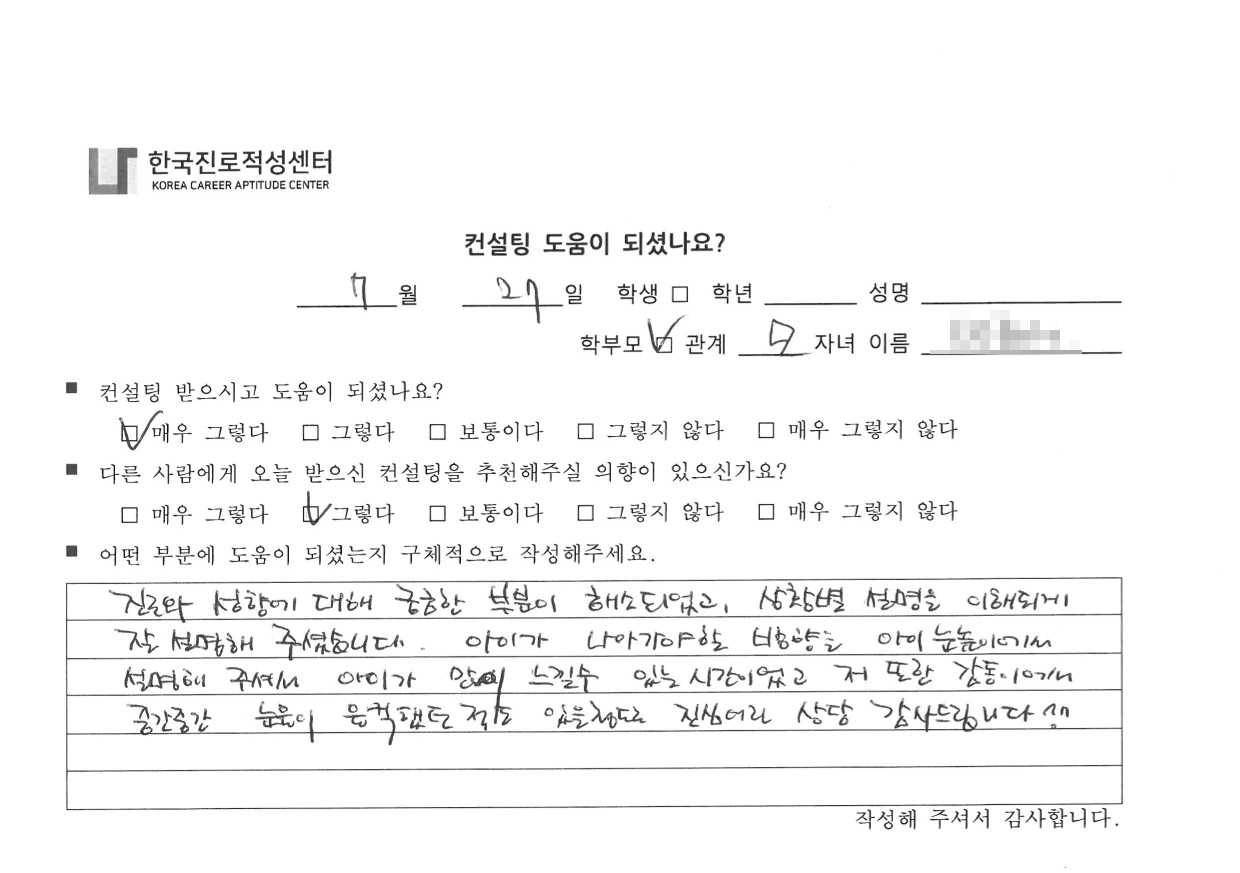 한국진로적성센터
KOREA CAREER APTITUDE CENTER
컨설팅 도움이 되셨나요?
7월 27일 학생 □ 학년 성명
학부모 ☑ 관계 모 자녀 이름
■ 컨설팅 받으시고 도움이 되셨나요?
☑ 매우 그렇다 □ 그렇다 □ 보통이다 □ 그렇지 않다 □ 매우 그렇지 않다
■ 다른 사람에게 오늘 받으신 컨설팅을 추천해주실 의향이 있으신가요?
□ 매우 그렇다 ☑ 그렇다 □ 보통이다 □ 그렇지 않다 □ 매우 그렇지 않다
■ 어떤 부분에 도움이 되셨는지 구체적으로 작성해주세요.
진로와 성향에 대해 궁금한 부분이 해소되었고, 상황별 설명을 이해되게
잘 설명해 주셨습니다. 아이가 나아가야할 방향을 아이 눈높이에서
설명해 주셔서 아이가 많이 느낄수 있는 시간이었고 저 또한 감동이어서
중간중간 눈물이 울컥했던 적도 있을정도로 진심어린 상담 감사드립니다
작성해 주셔서 감사합니다.